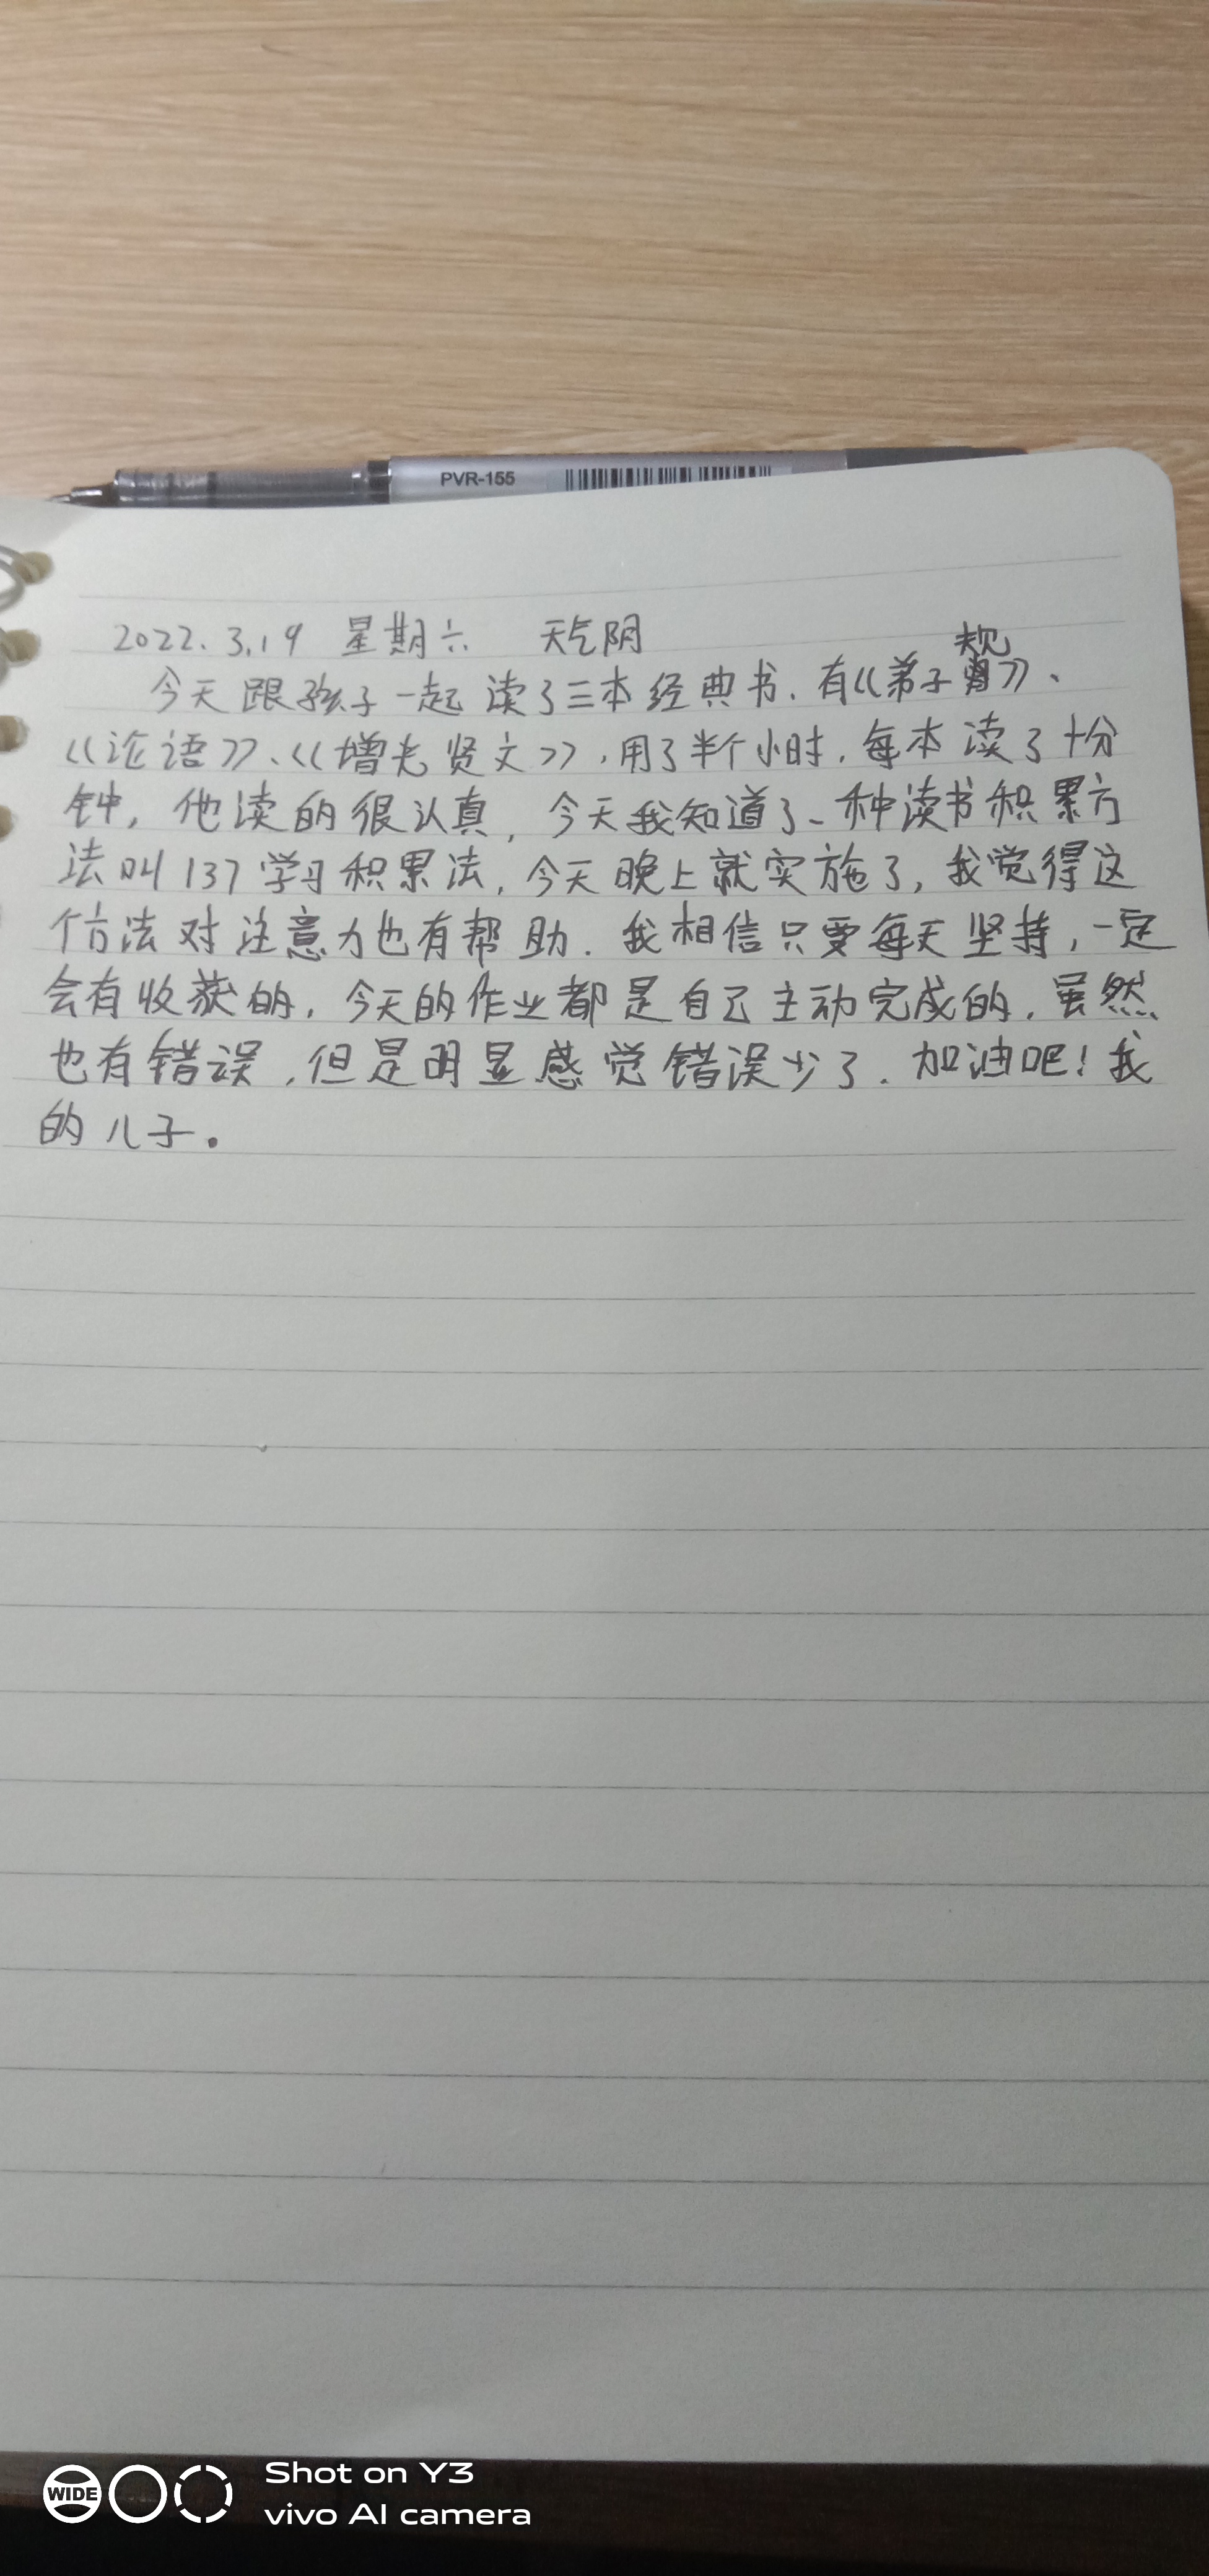 PVR-155
2022.3.19 星期六 天气阴
今天跟孩子一起读了三本经典书.有《弟子规》、
《论语》、《增光贤文》,用了半个小时.每本读了十分
钟,他读的很认真,今天我知道了一种读书积累方
法叫137学习积累法,今天晚上就实施了,我觉得这
个方法对注意力也有帮助.我相信只要每天坚持,一定
会有收获的,今天的作业都是自己主动完成的.虽然
也有错误,但是明显感觉错误少了.加油吧!我
的儿子。
WIDE
Shot on Y3
vivo AI camera